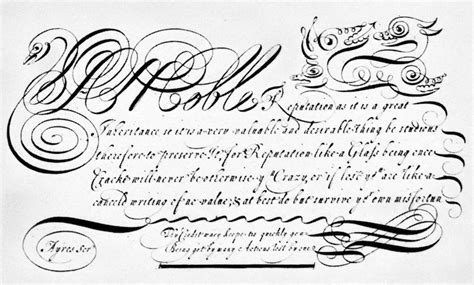 As Noble Reputation as it is a great
Inheritance so it is a very valuable and desirable thing be studious
therefore to preserve it, for Reputation like a Glass being once
Crackt will never be otherwise yn Crazy, or if lost ye are like a
cancel'd writing of no value, & at best do but survive yr own misfortun
Thy Credit wary keep, tis quickly gon
Being got by many Actions, lost by one
Ayres Scr